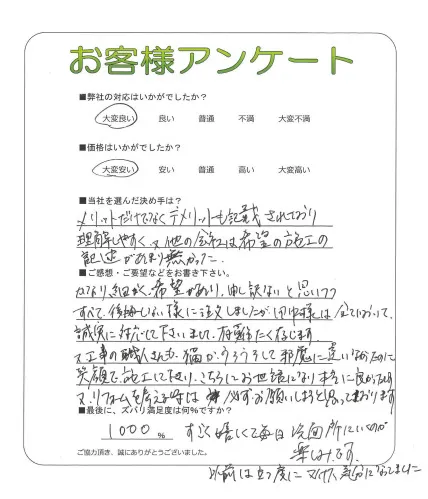 お客様アンケート
■弊社の対応はいかがでしたか？
大変良い 良い 普通 不満 大変不満
■価格はいかがでしたか？
大変安い 安い 普通 高い 大変高い
■当社を選んだ決め手は？
メリットだけでなくデメリットも記載されており
理解しやすく、又他の会社は希望の施工の
記述があまり無かった。
■ご感想・ご要望などをお書き下さい。
かなり、細かく、希望があり、申し訳ないと思いつつ
すべて、後悔しない様に注文しましたが 様は全てにおいて、
誠実に対応して下さいまして、有難たく存じます。
又工事の職人さんも、猫が、うろうろして邪魔に違いないのに
笑顔で、施工して下さり、こちらにお世話になり本当に良かったです
又、リフォームを考える時は 必ずお願いしようと思っております
■最後に、ズバリ満足度は何％ですか？
1000 ％ すごく嬉しくて毎日 洗面所にいくのが
楽しみです。
ご協力頂き、誠にありがとうございました。
以前は立つ度にマイナス気分になってました